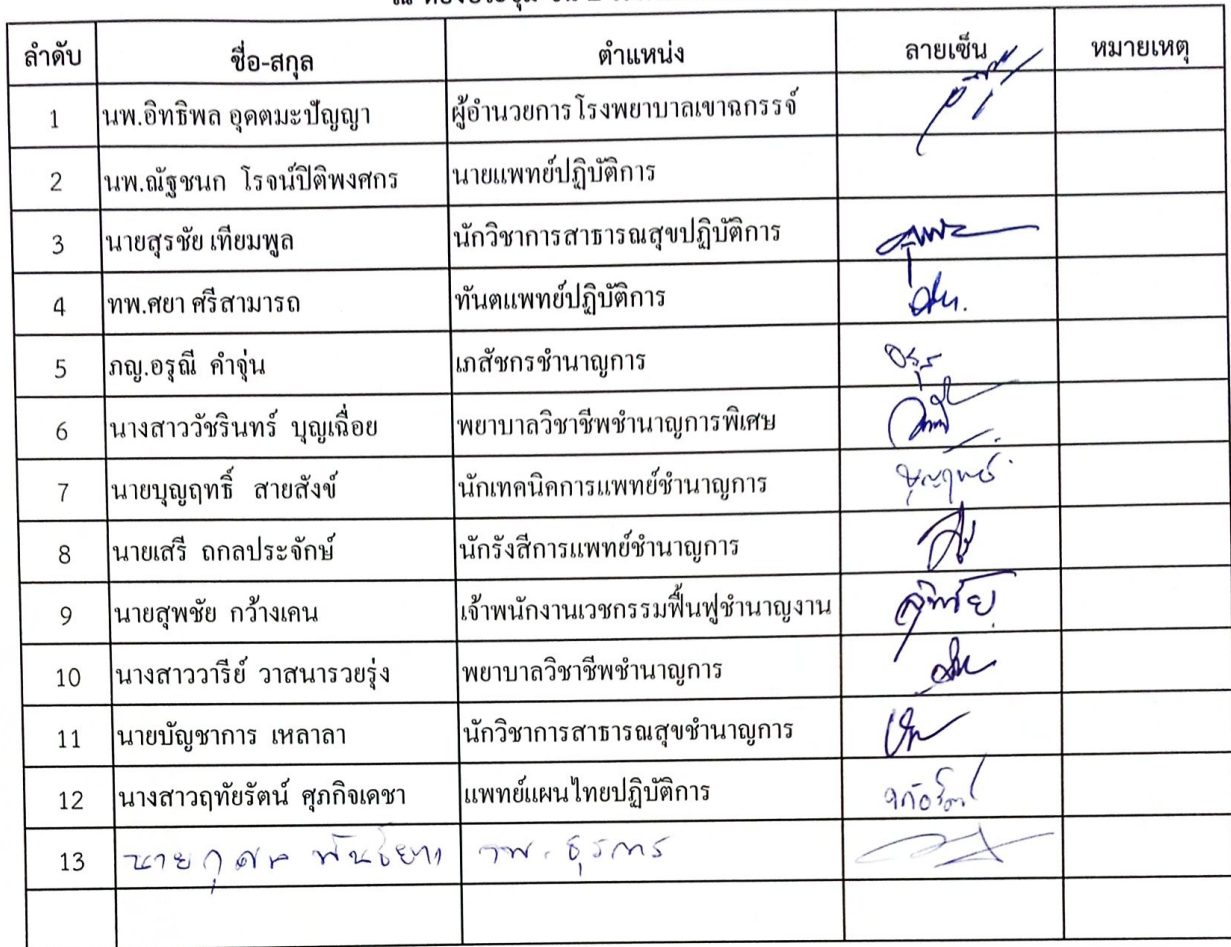 ลำดับ ชื่อ-สกุล ตำแหน่ง ลายเซ็น หมายเหตุ
1 นพ.อิทธิพล อุดตมะปัญญา ผู้อำนวยการโรงพยาบาลเขาฉกรรจ์
2 นพ.ณัฐชนก โรจน์ปิติพงศกร นายแพทย์ปฏิบัติการ
3 นายสุรชัย เทียมพูล นักวิชาการสาธารณสุขปฏิบัติการ
4 ทพ.ศยา ศรีสามารถ ทันตแพทย์ปฏิบัติการ
5 ภญ.อรุณี คำจุ่น เภสัชกรชำนาญการ
6 นางสาววัชรินทร์ บุญเฉื่อย พยาบาลวิชาชีพชำนาญการพิเศษ
7 นายบุญฤทธิ์ สายสังข์ นักเทคนิคการแพทย์ชำนาญการ
8 นายเสรี ถกลประจักษ์ นักรังสีการแพทย์ชำนาญการ
9 นายสุพชัย กว้างเคน เจ้าพนักงานเวชกรรมฟื้นฟูชำนาญงาน
10 นางสาววารีย์ วาสนารวยรุ่ง พยาบาลวิชาชีพชำนาญการ
11 นายบัญชาการ เหลาลา นักวิชาการสาธารณสุขชำนาญการ
12 นางสาวฤทัยรัตน์ ศุภกิจเดชา แพทย์แผนไทยปฏิบัติการ
13 นาย ธุรการ